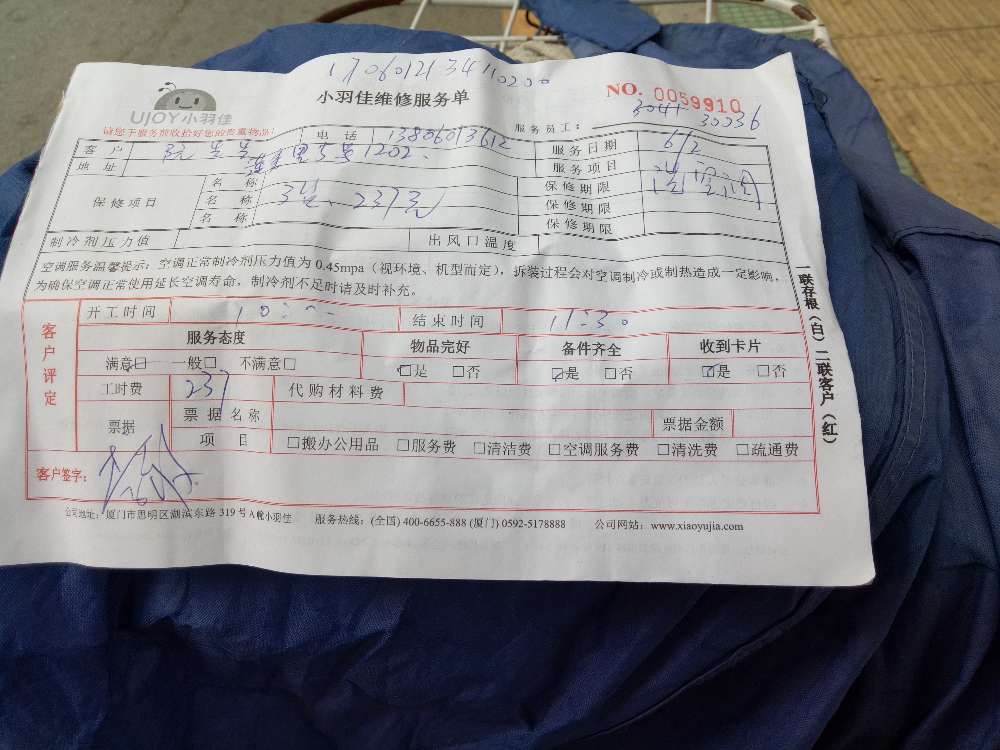 17060121341 0200
小羽佳维修服务单
NO. 0059910
UJOY小羽佳
请您于服务前收拾好您的贵重物品!
服务员工: 3041 30036
客户 阮先生 电话 13806013612 服务日期 6/2
地址 1202. 服务项目
保修项目 名称 保修期限
名称 保修期限
名称 保修期限
制冷剂压力值 出风口温度
空调服务温馨提示:空调正常制冷剂压力值为 0.45mpa(视环境、机型而定),拆装过程会对空调制冷或制热造成一定影响,
为确保空调正常使用延长空调寿命,制冷剂不足时请及时补充。
客户评定
开工时间 10: 结束时间 11:30
服务态度 物品完好 备件齐全 收到卡片
满意☑ 一般□ 不满意□ ☑是 □否 ☑是 □否 ☑是 □否
工时费 237 代购材料费
票据 票据名称 票据金额
项目 □搬办公用品 □服务费 □清洁费 □空调服务费 □清洗费 □疏通费
客户签字:
公司地址:厦门市思明区湖滨东路 319 号 A 幢小羽佳 服务热线:(全国) 400-6655-888 (厦门) 0592-5178888 公司网站:www.xiaoyujia.com
一联存根(白)二联客户(红)